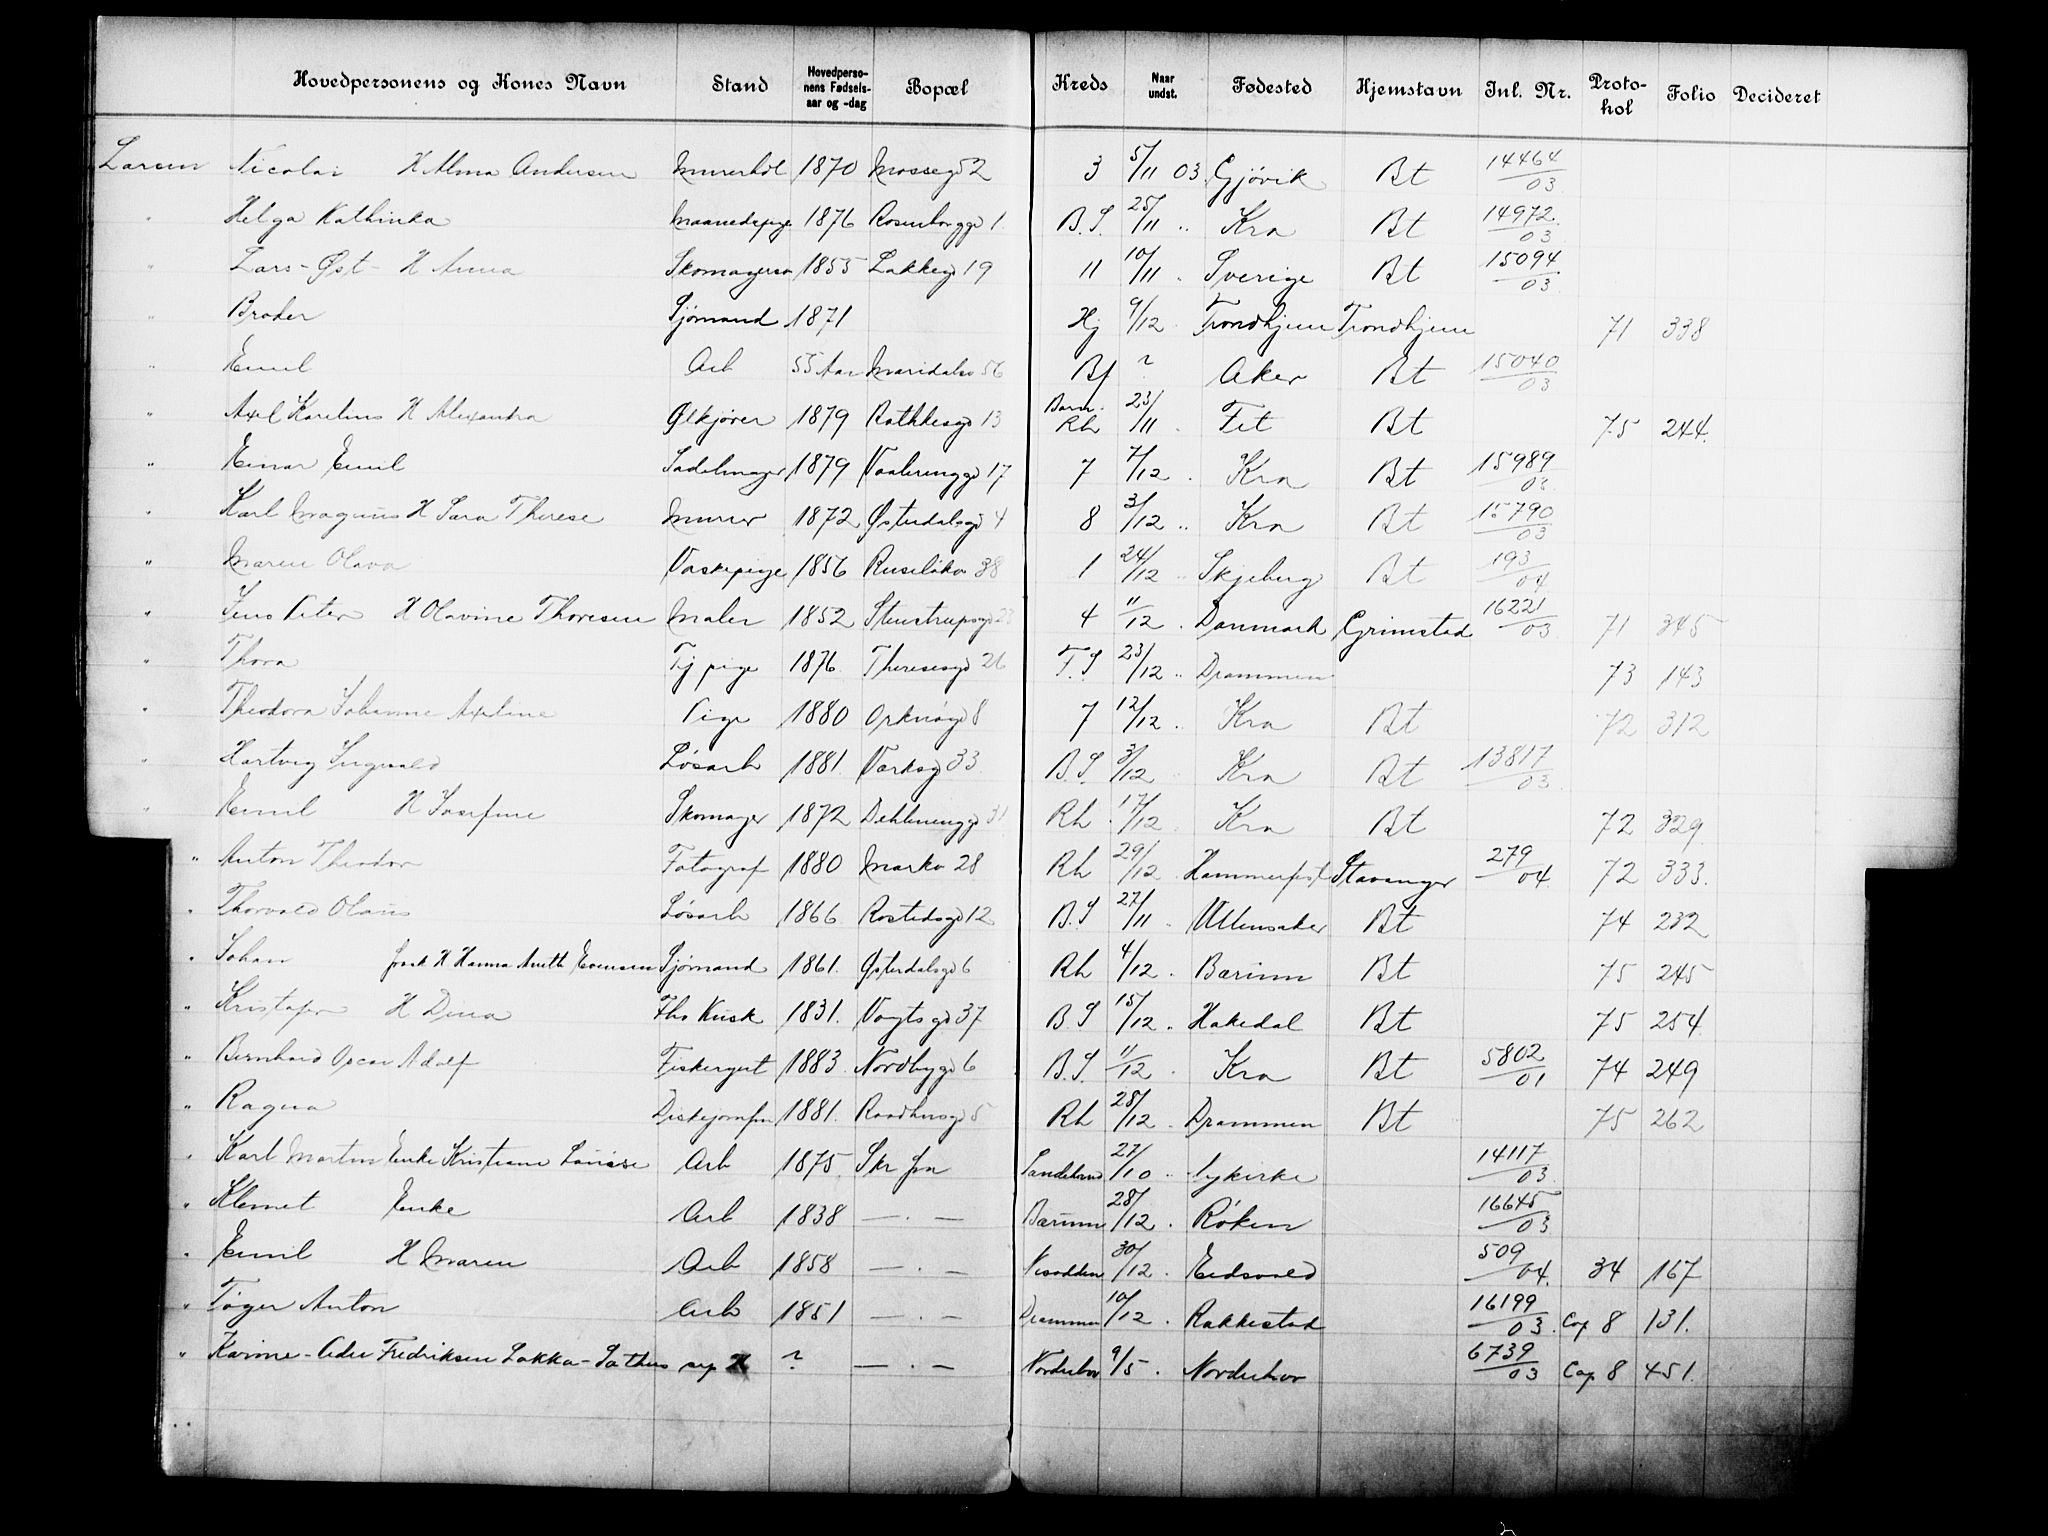 Hovedpersonens og Kones Navn Stand Hovedperso-nens Fødsels-aar og -dag Bopæl Kreds Naar undst. Fødested Hjemstavn Inl. Nr. Proto-kol Folio Decideret
Larsen Nicolai H Alma Andersen 1870 Mossegd 2 3 5/11 03 Gjøvik Bt 14464/03
" Helga Kathinka Maanedspige 1876 Rosenborggd 1 B.S. 25/11 " Kra Bt 14972/03
" Lars-Øst- H Anna 1855 Lakkegd 19 11 10/11 . Sverige Bt 15094/03
" Broder Sjømand 1871 Hj 9/12 . Trondhjem Trondhjem 71 338
" Emil Arb 55 Aar Maridalsv 56 Bf ? Aker Bt 15040/03
" Axel Karelius H Alexandra Ølkjører 1879 Rathkesgd 13 Barn. Rh 23/11 . Fet Bt 75 244.
" Einar Emil Sadelmager 1879 Vaalerenggd 17 7 7/12 . Kra Bt 15989/03
" Karl Magnus H Sara Therese Murer 1872 Østerdalsgd 4 8 3/12 " Kra Bt 15790/03
" Maren Olava Vaskepige 1856 Ruseløkv 38 1 24/12 " Skjeberg Bt 193/04
" Jens Peter H Olavine Thoresen Maler 1852 Stenstrupsgd 23 4 11/12 . Danmark Grimstad 16221/03 71 345
" Thora Tj pige 1876 Theresesgd 26 F.S 23/12 " Drammen 73 143
" Theodora Johanne Axeline Pige 1880 Orknøgd 8 7 12/12 . Kra Bt 72 312
" Hartvig Sigvald Løsarb 1881. Værksgd 33 B.S. 3/12 " Kra Bt 13817/03
" Emil H Josefine Skomager 1872 Dehlienenggd 31 Rh . 17/12 Kra Bt 72 329.
" Anton Theodor Fotograf 1880 Markv 28 Rh 29/12 . Hammerfest Stavanger 279/04 72 333.
" Thorvald Olaus Løsarb 1866 Rostedsgd 12 B.S 27/11 . Ullensaker Bt 74 232
" Johan frask H Hanna Aneth Evensen Sjømand 1861. Østerdalsgd 6 Rh 4/12 . Bærum Bt 75 245
" Kristofer H Dina Fhv Kusk 1831. Vogtsgd 37 B.S 15/12 . Hakedal Bt 75 254.
" Bernhard Oscar Adolf Fiskergut 1883. Nordbygd 6 B.S. 11/12 . Kra Bt 5802/01 74 249
" Ragna Diskejomfru 1881. Raadhusgd 5 Rh 28/12 . Drammen Bt 75 262
" Karl Martin Enke Kristiane Louise Arb 1875. Skr fra 27/10 " Nykirke 14117/03
" Klemet Enke Arb 1838 — . — Bærum 28/12 . Røken 16645/03
" Emil H Maren Arb 1858 — . — Nesodden 30/12 . Eidsvold 509/04. 34 167
" Tøger Anton Arb 1851 — . — Drammen 10/12 . Rakkestad 16199/03. Cap 8 131.
" Karine-Ada Fredriksen sep H ? — . — Norderhov 9/5 . Norderhov 6739/03 Cap 8 451.